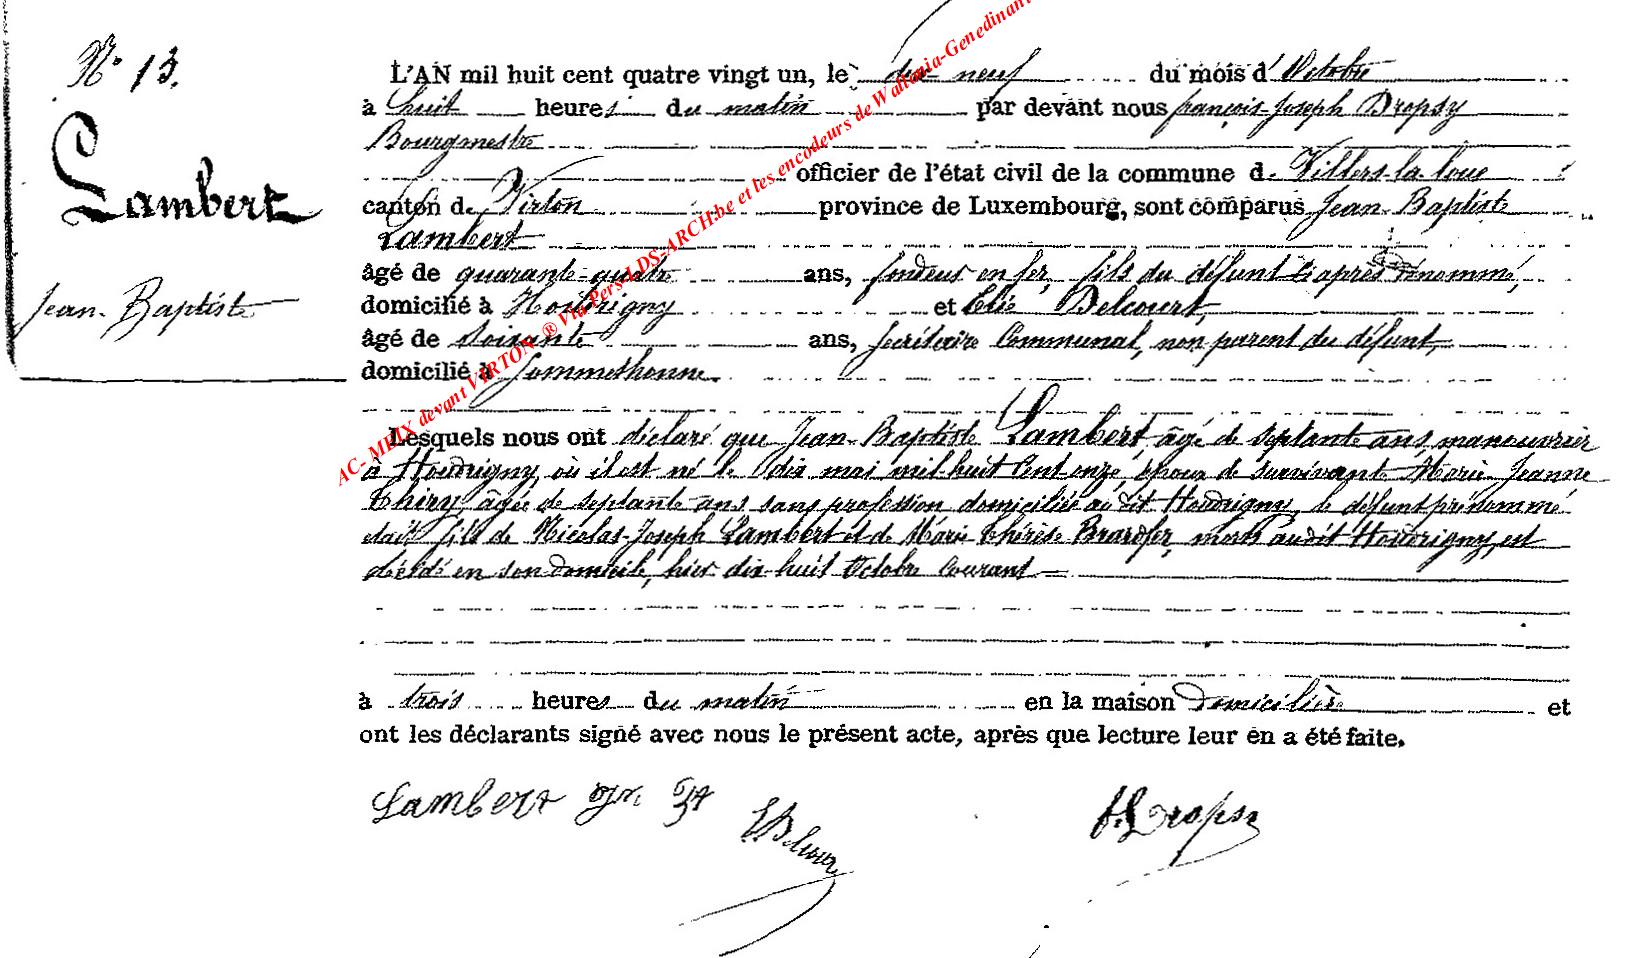 N° 13.
Lambert
Jean-Baptiste
L'AN mil huit cent quatre vingt un, le dix-neuf du mois d'Octobre
à huit heures du matin par devant nous françois-Joseph Dropsy
Bourgmestre
officier de l'état civil de la commune de Villers-la-loue
canton de Virton province de Luxembourg, sont comparus Jean-Baptiste
Lambert
âgé de quarante-quatre ans, fondeur en fer, fils du défunt ci après dénommé,
domicilié à Houdrigny et Elie Delcourt,
âgé de soixante ans, secrétaire Communal, non parent du défunt,
domicilié à Sommethonne.
Lesquels nous ont déclaré que Jean-Baptiste Lambert, âgé de septante ans, manouvrier
à Houdrigny, où il est né le dix mai mil huit Cent onze, époux de survivante Marie Jeanne
Thiry, âgée de septante ans sans profession domiciliée au dit Houdrigny, le défunt prénommé
était fils de Nicolas-Joseph Lambert et de Marie Thérèse morts audit Houdrigny, est
décédé en son domicile, hier dix-huit Octobre Courant
à trois heures du matin en la maison domicilière et
ont les déclarants signé avec nous le présent acte, après que lecture leur en a été faite.
Lambert
Dropsy
AC- MEIX devant VIRTON ® Via Pers-LDS-ARCH.be et les encodeurs de Wallonia-Genedinant